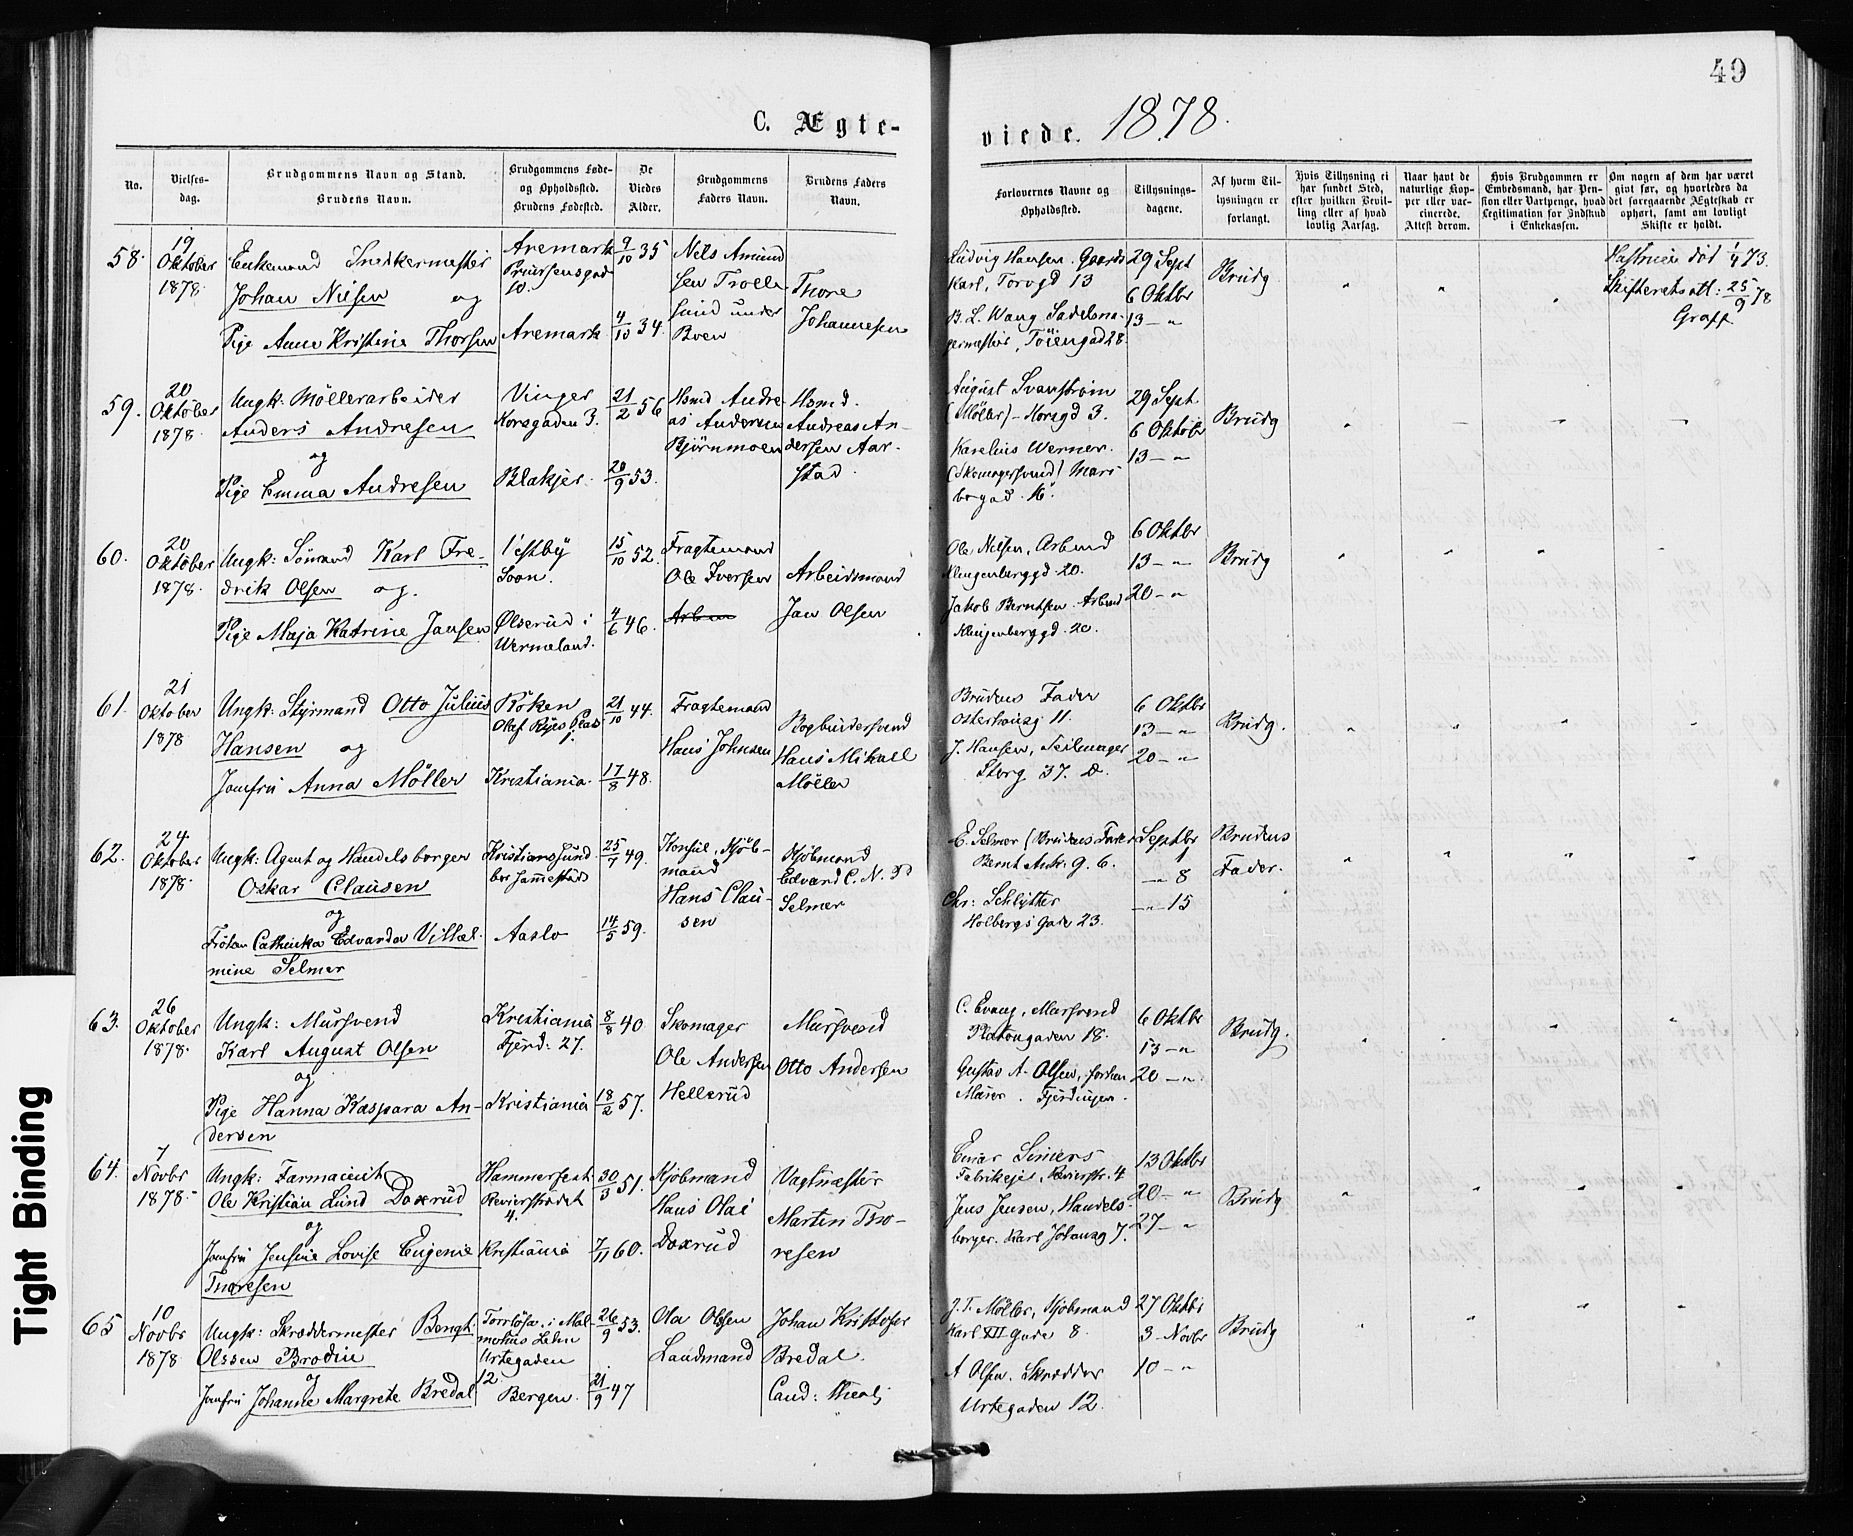 49
C. Ægte-
viede. 1878.
No.
Vielses-
dag.
Brudgommens Navn og Stand.
Brudens Navn.
Brudgommens Føde-
og Opholdssted.
Brudens Fødested.
De
Viedes
Alder.
Brudgommens
Faders Navn.
Brudens Faders
Navn.
Forlovernes Navne og
Opholdssted.
Tillysnings-
dagene.
Af hvem Til-
lysningen er
forlangt.
Hvis Tillysning ei
har fundet Sted,
efter hvilken Bevil-
ling eller af hvad
lovlig Aarsag.
Naar havt de
naturlige Kop-
per eller vac-
cinerede.
Attest derom.
Hvis Brudgommen er
Embedsmand, har Pen-
sion eller Vartpenge, hvad
Legitimation for Indskud
i Enkekassen.
Om nogen af dem har været
givt før, og hvorledes da
det foregaaende Ægteskab er
ophørt, samt om lovligt
Skifte er holdt.
58.
19
Oktober
1878.
Enkemand Snedkermester
Johan Nilsen og
Pige Anne Kristine Thorsen
Aremark
10.
Aremark
9/10 35
4/10 34.
Nils Amund
sen
Thore
Johannesen
Ludvig Hansen. Gaards
Karl, Torvgd 13
B. L. Wang Sadelma-
germester, Töiengad 28.
29 Sept
6 Oktbr
13 – "
Brudg
død 1/4 73.
25/9 78
59.
20
Oktober
1878.
Ungk: Möllerarbeider
Anders Andresen
og
Pige Emma Andresen
Vinger
Korsgaden 3.
Blakjer.
21/2 56
20/9 53.
Hsmd Andre-
as Andersen
Björnmoen
Hsmd.
Andreas An-
dersen Aar-
stad.
August Svanström
(Möller) – Korsgd 3.
Karelius Werner.
(Skomagersvend)
29 Sept.
6 Oktobr
13 – "
Brudg
60.
20
Oktober
1878.
Ungk: Sömand Karl Fre-
drik Olsen og.
Pige Maja Katrine Jansen
Vestby
Soon.
Ölserud i
Wermeland.
15/10 52.
4/6 46.
Fragtemand
Ole Iversen
Arbeidsmand
Jan Olsen
Ole Nilsen, Arbmd
Klingenberggd. 20.
Jakob Berntsen. Arbmd
Klingenberggd. 20.
6 Oktbr
13 – "
20 – "
Brudg
61.
21
Oktober
1878
Ungk: Styrmand Otto Julius
Hansen og
Jomfru Anna Möller
Röken
Olaf Ryes Plads
Kristiania.
21/10 44.
17/8 48.
Fragtemand
Hans Johnsen
Bogbindersvend
Hans Mikael
Möller
Brudens Fader
Osterhausg 11.
J. Hansen, Seilmager
Storg 37. D.
6 Oktbr
13 – "
20 – "
Brudg.
62.
24
Oktober
1878
Ungk: Agent og Handelsborger
Oskar Clausen
og
Fröken Cathinka Edvarda Vilhel-
mine Selmer
Kristianssund
Aaslo
25/7 49.
14/5 59.
Konsul, Kjöb-
mand
Hans Clau-
sen
Kjöbmand
Edvard C. N. P
Selmer
E. Selmer (Brudens Fader
Bernt Ank: g. 6.
Chr: Schlytter
Holbergs Gade 23.
Septbr
1
– " 8
– " 15
Brudens
Fader.
63.
26
Oktober
1878.
Ungk: Mursvend
Karl August Olsen
og
Pige Hanna Kaspara An-
dersen
Kristiania
Fjerd: 27.
Kristiania
8/8 40
18/2 57.
Skomager
Ole Andersen
Hellerud
Mursvend
Otto Andersen
C. Evang, Mursvend
Platougaden 18.
Gustav A. Olsen, forhen
Murer. Fjerdingen.
6 Oktbr
13 – "
20 – "
Brudg.
64.
7
Novbr
1878.
Ungk: Farmaceut
Ole Kristian Lund Doxrud
og
Jomfru Jensine Lovise Eugenie
Thoresen
Hammerfest
Revierstrædet
4.
Kristiania
30/3 51.
7/11 60.
Kjöbmand
Hans Olai
Doxrud
Vagtmester
Martin Tho-
resen
Einar Simers
Fabrikeier, Revierstr. 4
Jens Jensen, Handels-
borger. Karl Johansg 7.
13 Oktbr
20 – "
27 – "
Brudg
65
10
Novbr
1878
Ungk: Skræddermester Bengt
Olssen Brodin
og
Jomfru Johanne Margrete Bredal
Torrlösa i Mal-
möhus Lehn
Urtegaden
12.
Bergen.
26/9 53.
21/9 47
Ola Olssen
Landmand
Johan Kristofer
Bredal.
Cand: theol:
J. T. Möller, Kjöbmand
Karl XII gade 8.
A Olsen. Skrædder
Urtegaden 12.
27 Oktbr
3 – Novbr
10 – "
Brudg
Tight Binding